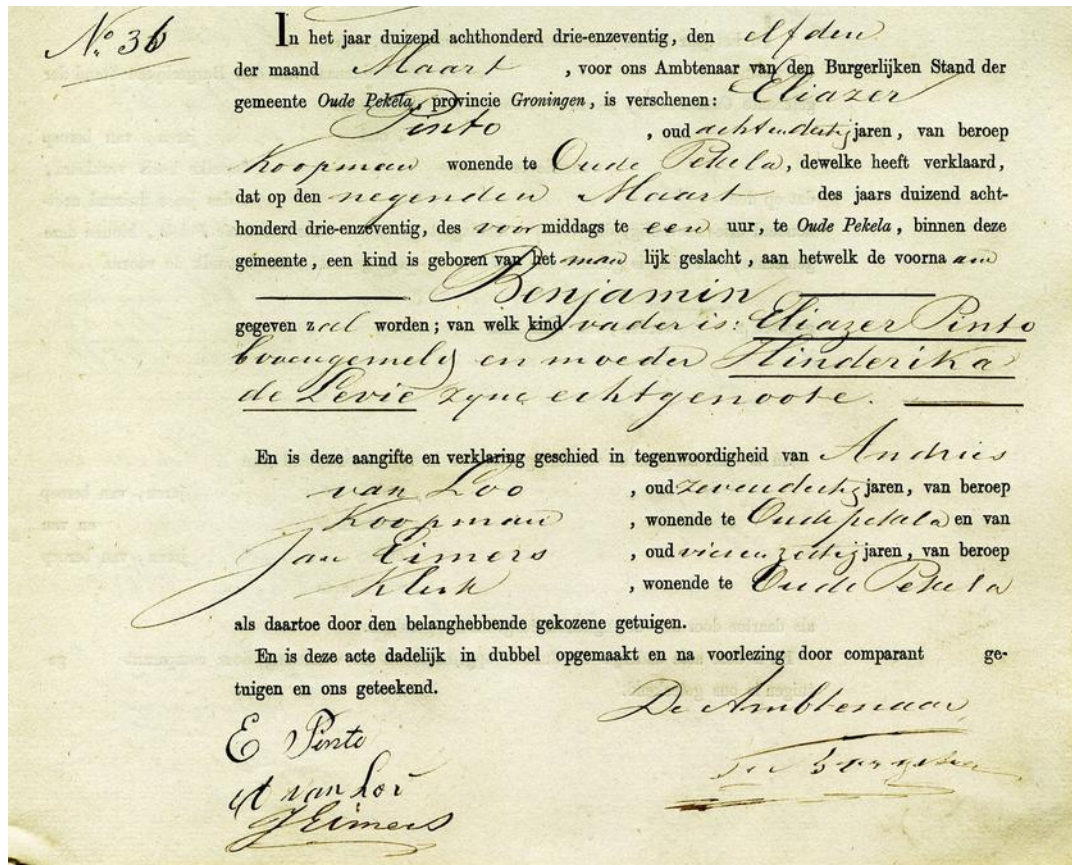 No. 36
In het jaar duizend achthonderd drie-enzeventig, den elfden
der maand Maart , voor ons Ambtenaar van den Burgerlijken Stand der
gemeente Oude Pekela, provincie Groningen, is verschenen: Eliazer
Pinto , oud achtendertig jaren, van beroep
Koopman wonende te Oude Pekela, dewelke heeft verklaard,
dat op den negenden Maart des jaars duizend acht-
honderd drie-enzeventig, des voormiddags te een uur, te Oude Pekela, binnen deze
gemeente, een kind is geboren van het manlijk geslacht, aan hetwelk de voornaam
Benjamin
gegeven zal worden; van welk kind vader is: Eliazer Pinto
bovengemeld en moeder Hinderika
de Levie zyne echtgenoote.
En is deze aangifte en verklaring geschied in tegenwoordigheid van Andries
van Loo , oud zevendertig jaren, van beroep
Koopman , wonende te Oude pekela en van
Jan Eimers , oud vierenzestig jaren, van beroep
Klerk , wonende te Oude Pekela
als daartoe door den belanghebbende gekozene getuigen.
En is deze acte dadelijk in dubbel opgemaakt en na voorlezing door comparant ge-
tuigen en ons geteekend.
De Ambtenaar
E Pinto
A van Loo
J Eimers